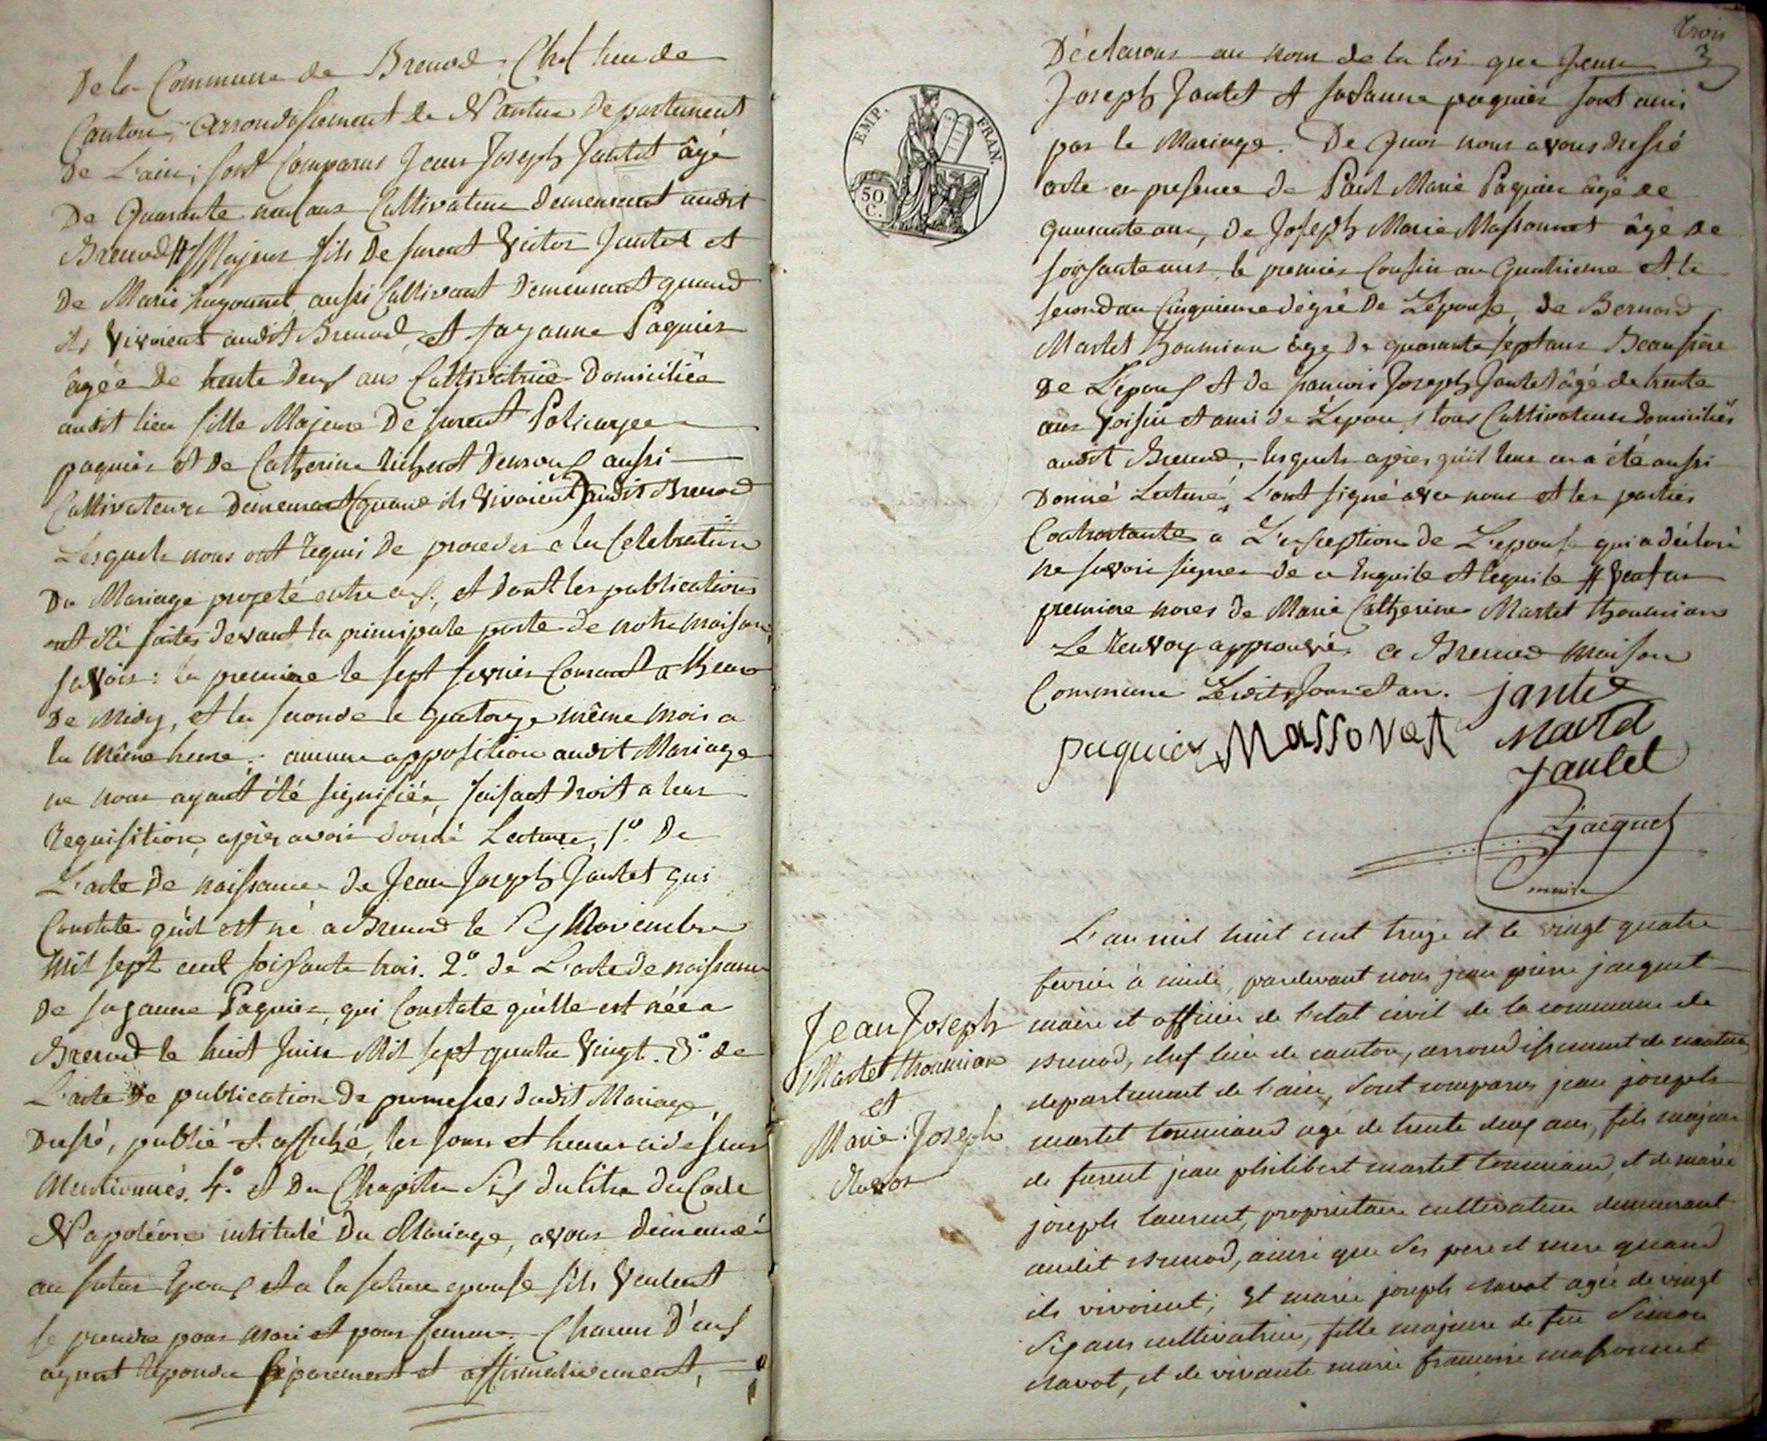 De la Commune de Brenod, Chef lieu de
Canton, Arrondissement de Nantua Departement
de L'ain; sont Comparus Jean Joseph Jantet âgé
De Quarante neuf ans Cultivateur demeurant audit
Brenod # Majeur fils De furent Victor Jantet et
De Marie hugonnet aussi Cultivant Demeurant quand
ils vivoient audit Brenod, et Suzanne Paquier
âgée de trente deux ans Cultivatrice Domiciliée
audit lieu fille Majeure De furent Policarpe
paquier et de Catherine Richerot d'eux aussi
Cultivateurs demeurant (quand ils Vivoient) audit Brenod
Lesquels nous ont requi de proceder a la Celebration
Du Mariage projeté entre eux, et dont les publications
ont été faites devant la principale porte de notre maison,
savoir: la premiere le sept fevrier Courant a heure
De Midy, et la seconde le quatorze même mois a
la même heure; aucune opposition audit Mariage
ne nous ayant été signifiée, faisant droit a leur
Requisition, après avoir donné Lecture, 1º. De
L'acte De naissance de Jean Joseph Jantet qui
Constate qu'il est né a Brenod le Six Novembre
Mil sept cent soixante trois. 2º. de L'acte de naissance
de Suzanne Paquier, qui Constate qu'elle est née a
Brenod le huit Juin Mil sept quatre Vingt. 3º. de
L'acte de publication De promesses dudit Mariage
Dressé, publié et affiché, les jours et heures ci dessus
Mentionnés. 4º et Du Chapitre Six du titre du Code
Napoléon intitulé Du Mariage, avons demandé
au futur Epoux et a la future epouse s'ils Veulent
se prendre pour mari et pour femme. Chacun D'eux
ayant repondu séparement et affirmativement,
Trois
3
Déclarons au nom de la loi que Jean
Joseph Jantet et Susanne paquier sont unis
par le Mariage. De Quoi nous avons dressé
acte en presence de Paul Marie Paquier âgé de
quarante ans, de Joseph Marie Massonnet âgé de
soixante ans, le premier Cousin au Quatrieme et le
second au Cinquieme dégré De L'épouse, de Bernard
Martet Thoumian âgé De quarante sept ans Beaufrère
de L'epoux et de francois Joseph Jantet âgé de trente
ans Voisin et ami de L'epoux, tous Cultivateurs domiciliés
audit Brenod, lesquels après qu'il leur en a été aussi
Donné Lecture, L'ont signé avec nous et les parties
Contractantes a L'exception de L'epouse qui a déclaré
ne savoir signer de ce Enquise et requise # Veuf en
premiere noces de Marie Catherine Martet Thoumian
Le Renvoy approuvé. a Brenod Maison
Commune Lesdits Jour et an. jantet
paquier Massonet Martel
Jantet
Jacquet
maire
EMP. FRAN.
50 C.
Jean Joseph
Martet Thoumian
et
Marie Joseph
Ravot
L'an mil huit cent treize et le vingt quatre
fevrier à midi, pardevant nous jean pierre jacquet
maire et officier de l'etat civil de la commune de
brenod, chef lieu de canton, arrondissement de nantua
departement de l'ain, sont comparus jean joseph
martet toumiand agé de trente deux ans, fils majeur
de furent jean philibert martet toumiand, et de marie
joseph laurent, proprietaire cultivateur demeurant
audit brenod, ainsi que ses pere et mere quand
ils vivoient; Et marie joseph ravot agée de vingt
six ans cultivatrice, fille majeure de feu Simon
ravot, et de vivante marie francoise massonnet